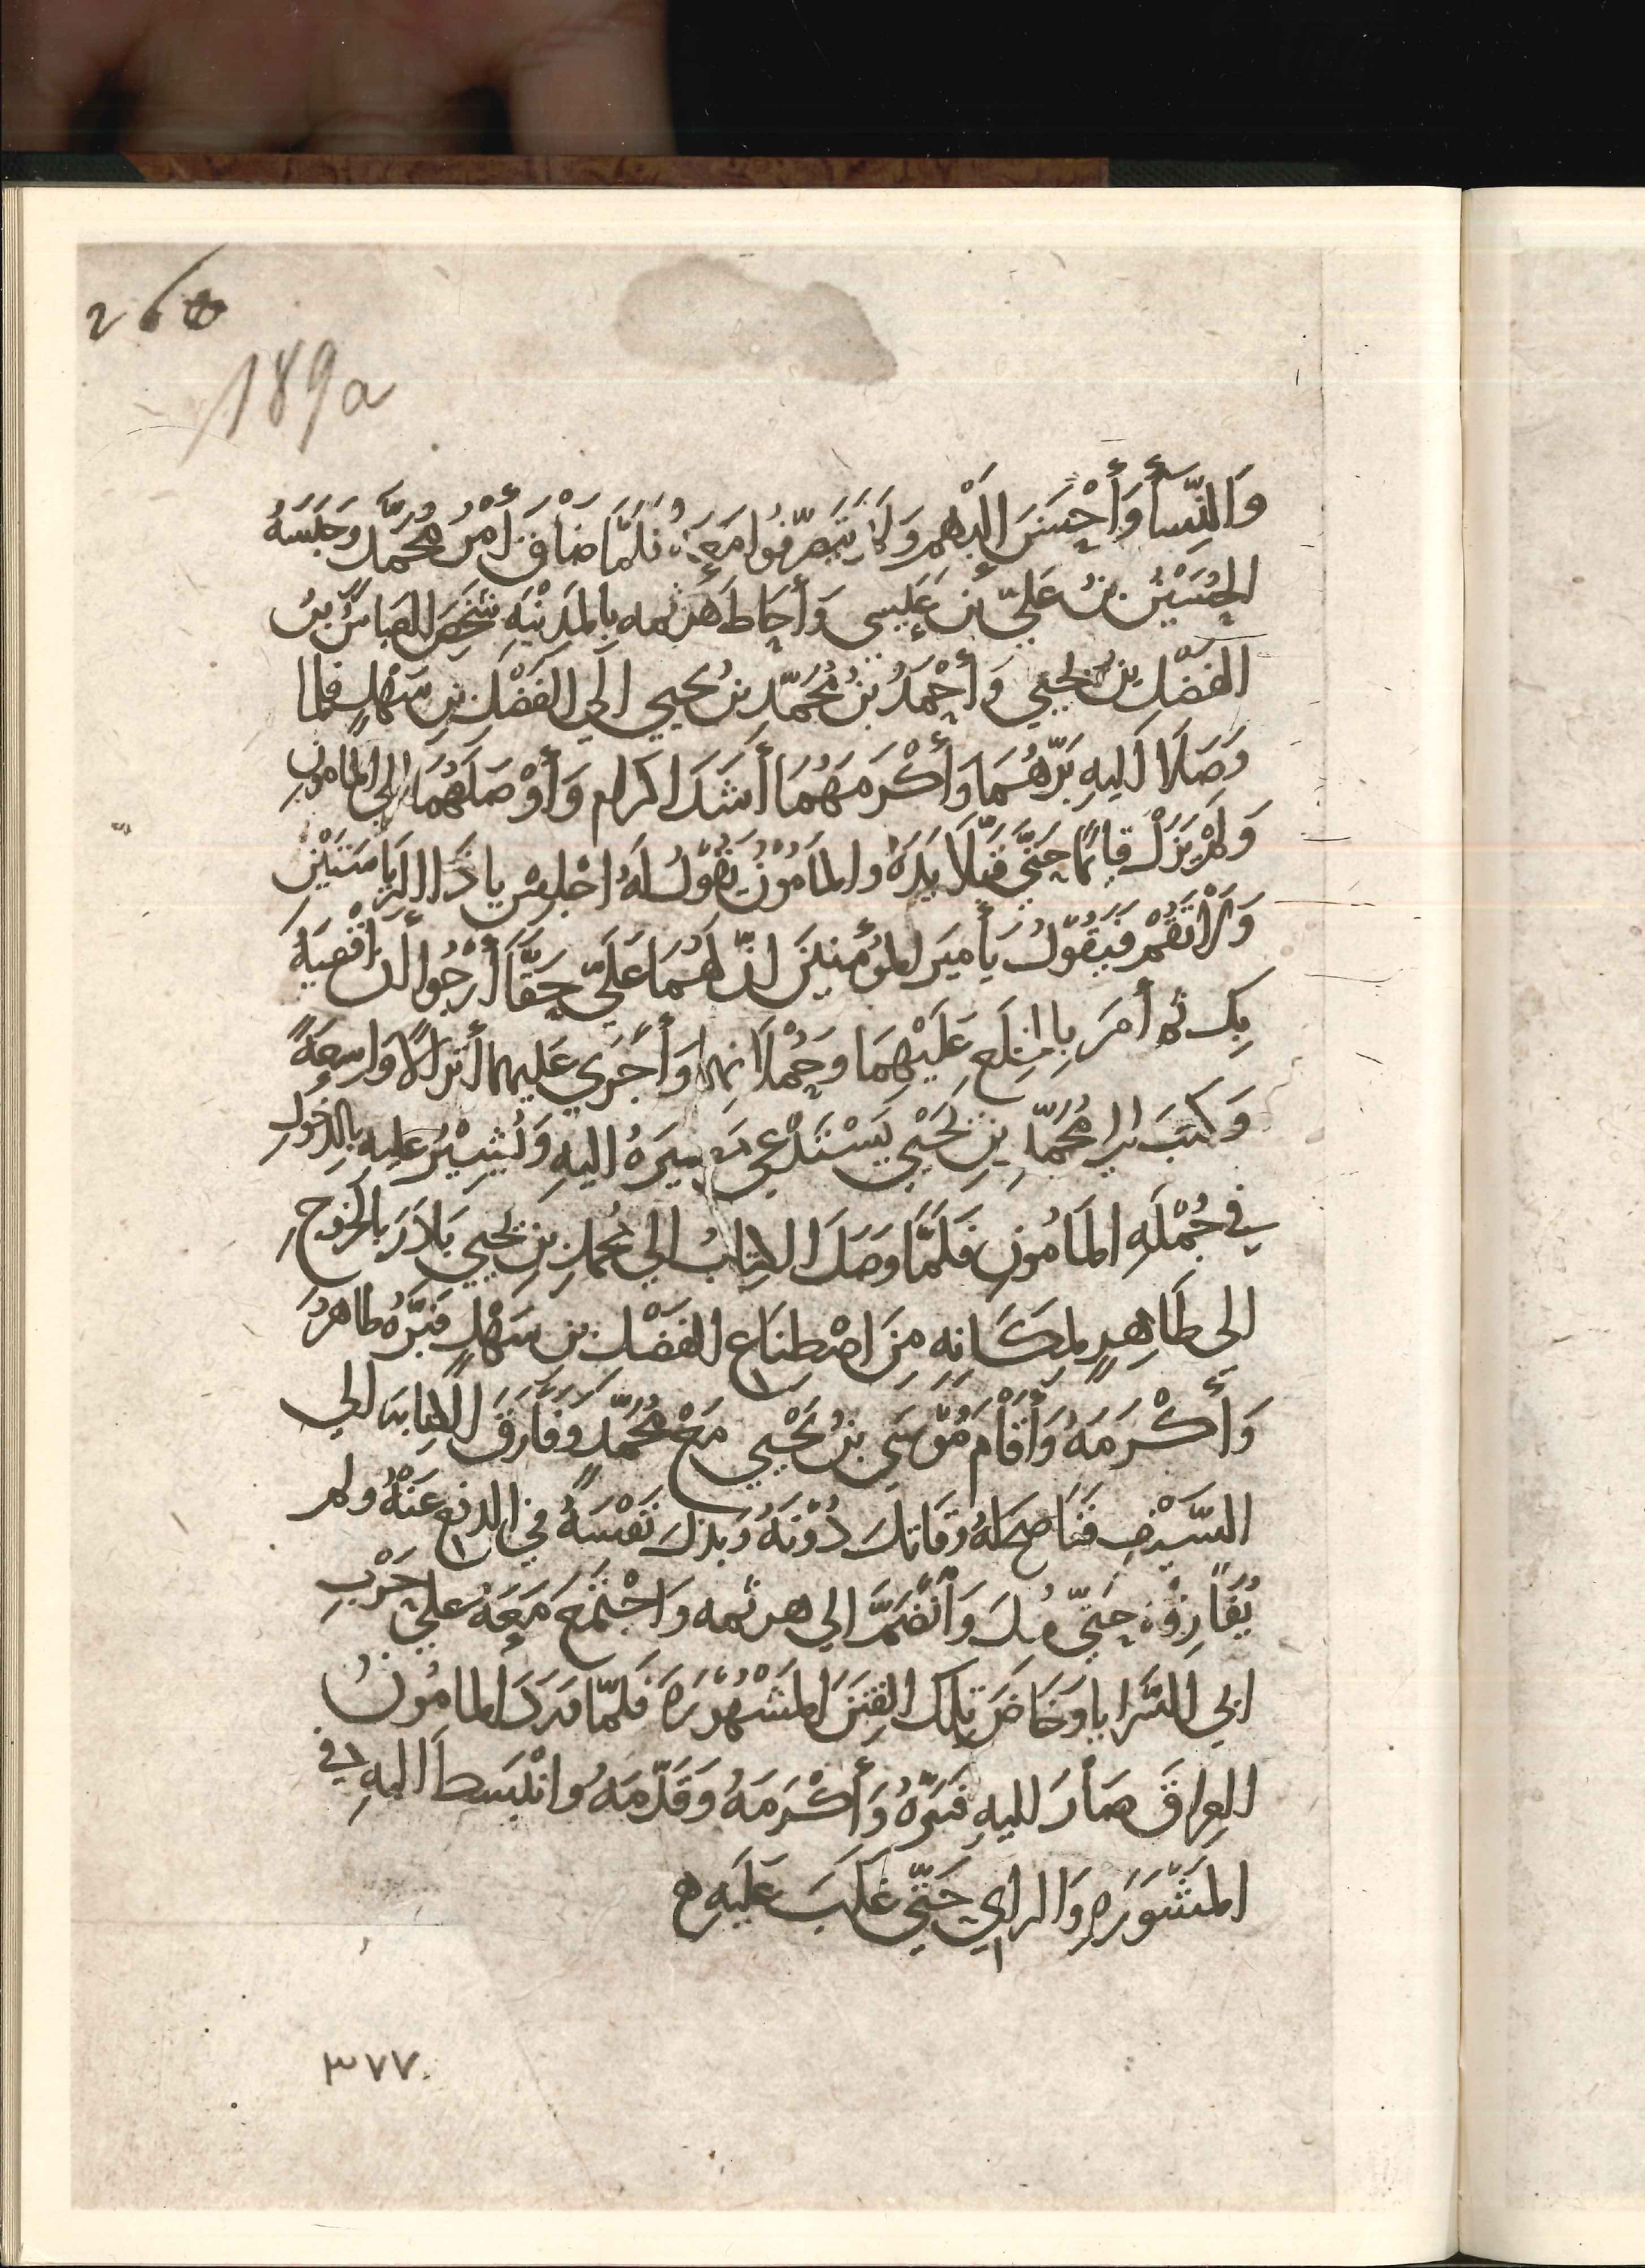 260
189a
وَالنِّسَأ وَأَحْسَنَ إِلَيْهِم وَلَمْ يَتَصَرَّفُوا مَعَهُ فَلَمَّا ضَاقَ أَمْرُ مُحَمَّد وَحَبَسَهُ
الحُسَيْنُ بنُ عَليِّ بن عِيسى وَأحَاطَ هَرْثمه بِالمَدِيْنَةِ شَخَصَ العَباسُ بنُ
الفَضْلِ بنِ يَحْيَي وَأحْمَدُ بنُ مُحَمَّدِ بنُ يحيي الَي الفَضْلِ بنِ سَهْلٍ فلما
وَصَلَا الَيهِ بَرَّهُمَا وَأكْرَمَهُمَا أشَدَ اكرام وَأوْصَلَهُمَا إلي المامونِ
وَلَمْ يَزَلْ قائمًا حَتَّي قَبَّلَا يَدَهُ والمَامُوْنُ يَقُوْلُ لَهُ اجْلِسْ ياذَا الرِيَاسَتَيْنِ
وَلَا تَقُمْ فَيَقُوْلُ يَأميَر المُؤْمِنينَ انَّ لَهُمَا عَلَيَّ حَقًّا أرْجُوا أن أقْضِيَهُ
بِكَ ثم أمَرَ بِالخِلَعِ عَلَيْهِمَا وحُمْلَانِهِمَا وَأَجْرَي عَليهما أنزالًا وَاسِعَةً
وَكَتَبَ الي مُحَمَّدِ بنِ يَحْيَي يَسْتَدْعِي مَسِيَرهُ اليهِ وَيُشِيْرُ عليهِ بالدخولِ
في جُمْلَهِ المَامُونِ فَلَمَّا وَصَلَ الكِتابُ الي مُحمدِ بنِ يَحْيي بَادَرَ بالخُروجِ
الي طَاهِرٍ لِمكَانِهِ مِنَ اصْطِنَاع الفَضْلِ بنِ سَهْلٍ فَبَرَّهُ طاهرُ
وَأكْرَمَهُ وَأقَامَ مُوْسَي بنُ يَحْيي مَعَ مُحَمَّدٍ وَفَارَقَ الكِتابَه الي
السَّيْفِ فنَاصَحَهُ وقَاتلَ دُوْنَهُ وَبذلَ نَفْسَهُ في الدفعِ عَنْهُ ولم
يُفَارِقْهُ حَتّي قُتِلَ وَانْضَمَّ الي هرثمه وَاجْتَمَعَ مَعَهُ عَليَ حَرْبِ
ابي السَّرايا وَخَاضَ تِلكَ الفِتَنَ المَشْهُوْرَة فَلَمّا وَرَدَ المامُونُ
العِراقَ صَارَ اليهِ فَبَرّهُ وَأكْرَمَهُ وَقَدَّمَهُ وانْبَسطَ اليهِ في
المَشُورَهِ وَالراي حَتّي غَلَبَ عَلَيهِ ه
٣٧٧